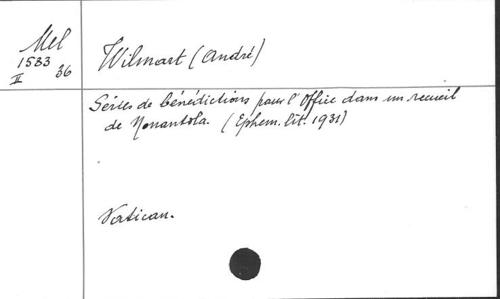 Mel
1533
II 36
Wilmart (André)
Séries de bénédictions pour l'Office dans un recueil
de Nonantola. (Ephem. lit. 1931)
Vatican.